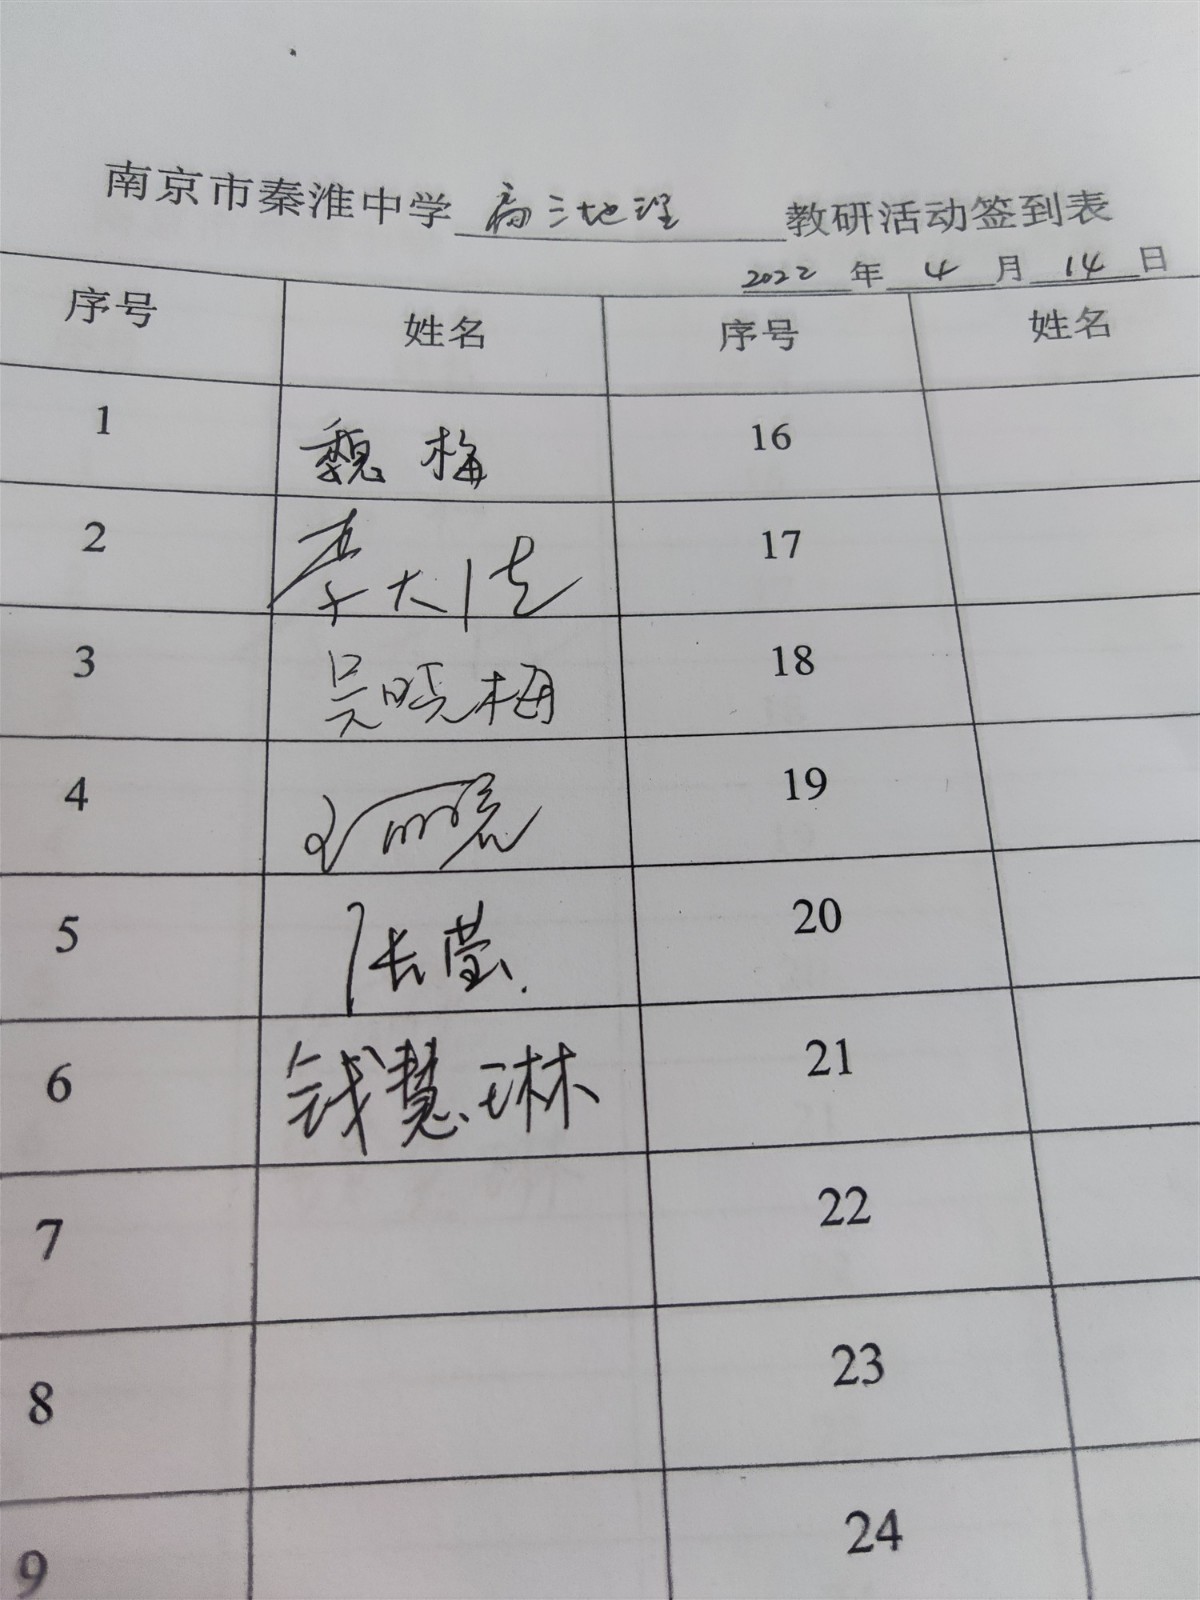 南京市秦淮中学 高三地理 教研活动签到表
2022 年 4 月 14 日
序号 姓名 序号 姓名
1 魏梅 16
2 李大 17
3 吴晓梅 18
4 19
5 张莹 20
6 钱慧琳 21
7 22
8 23
9 24